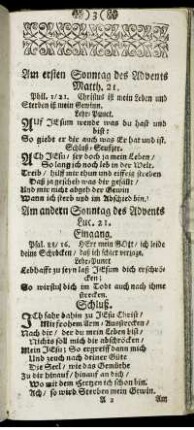 3
Am ersten Sonntag des Advents
Matth. 21.
Phil. 1/21. Christus ist mein Leben und
Sterben ist mein Gewinn.
Lehr-Punct.
Auf JEsum wende was du hast und
bist:
So giebt er dir auch was Er hat und ist.
Schluß-Seufzer.
Ach JEsu/ sey doch ja mein Leben/
So lang ich noch leb in der Welt.
Treib/ hilff mir thun und eiffrig streben
Daß ja gescheh was dir gefällt/
Und mir nicht abgeh der Gewin
Wann ich sterb und im Abschied bin/
Am andern Sonntag des Advents
Luc. 21.
Eingang.
Psal. 88/16. HErr mein GOtt/ ich leide
dein Schrecken/ daß ich schier verzage.
Lehr-Punct
Lebhafft zu seyn laß JEsum dich erschrö-
cken;
So wirstu dich im Todt auch nach ihme
strecken.
Schluß.
Ich fahr dahin zu JEsu Christ/
Mit frohem Arm/ Ausstrecken/
Nach dir/ der du mein Leben bist/
Nichts soll mich dir abschröcken/
Mein JEsu; So ergreiff dann mich
Und zeuch nach deiner Güte
Die Seel/ wie das Gemühte
Zu dir hinauf/ hinauf an dich/
Wo mit dem Hertzen ich schon bin.
Ach/ so wird Sterben mein Gewin.
A 2 Am